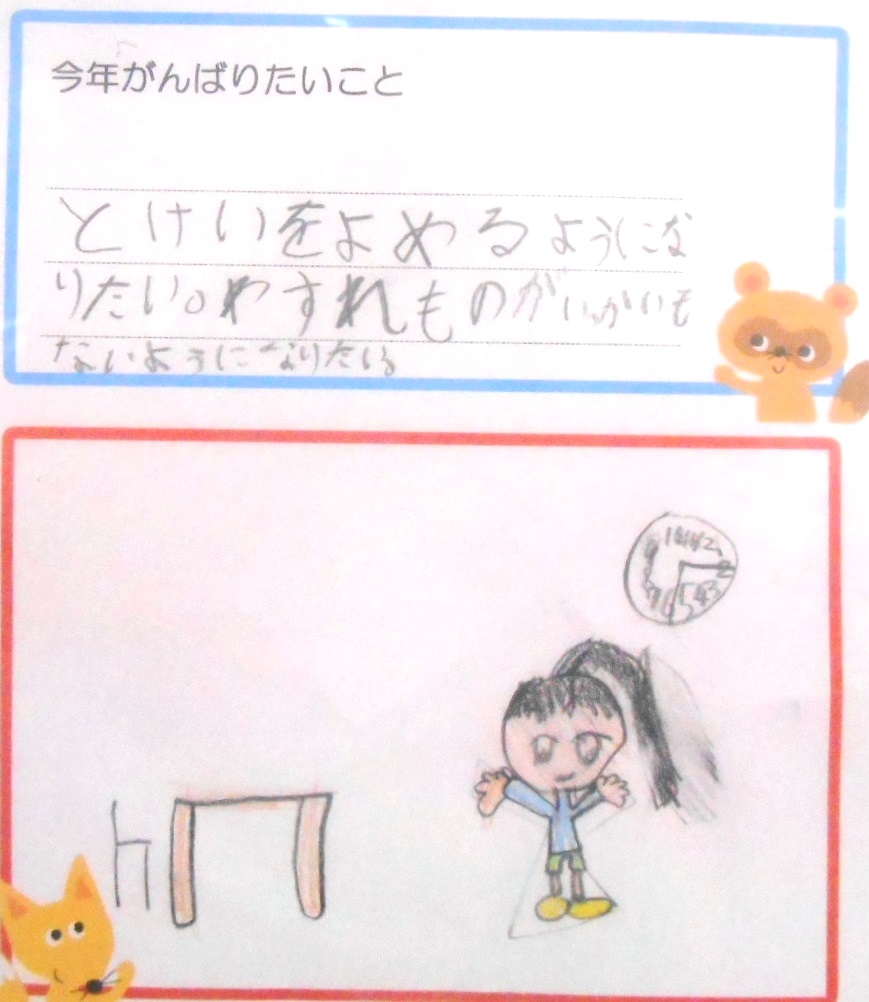 今年がんばりたいこと
とけいをよめるようにな
りたい。わすれものがいっかいも
ないようになりたい。
12
2
3
4
5